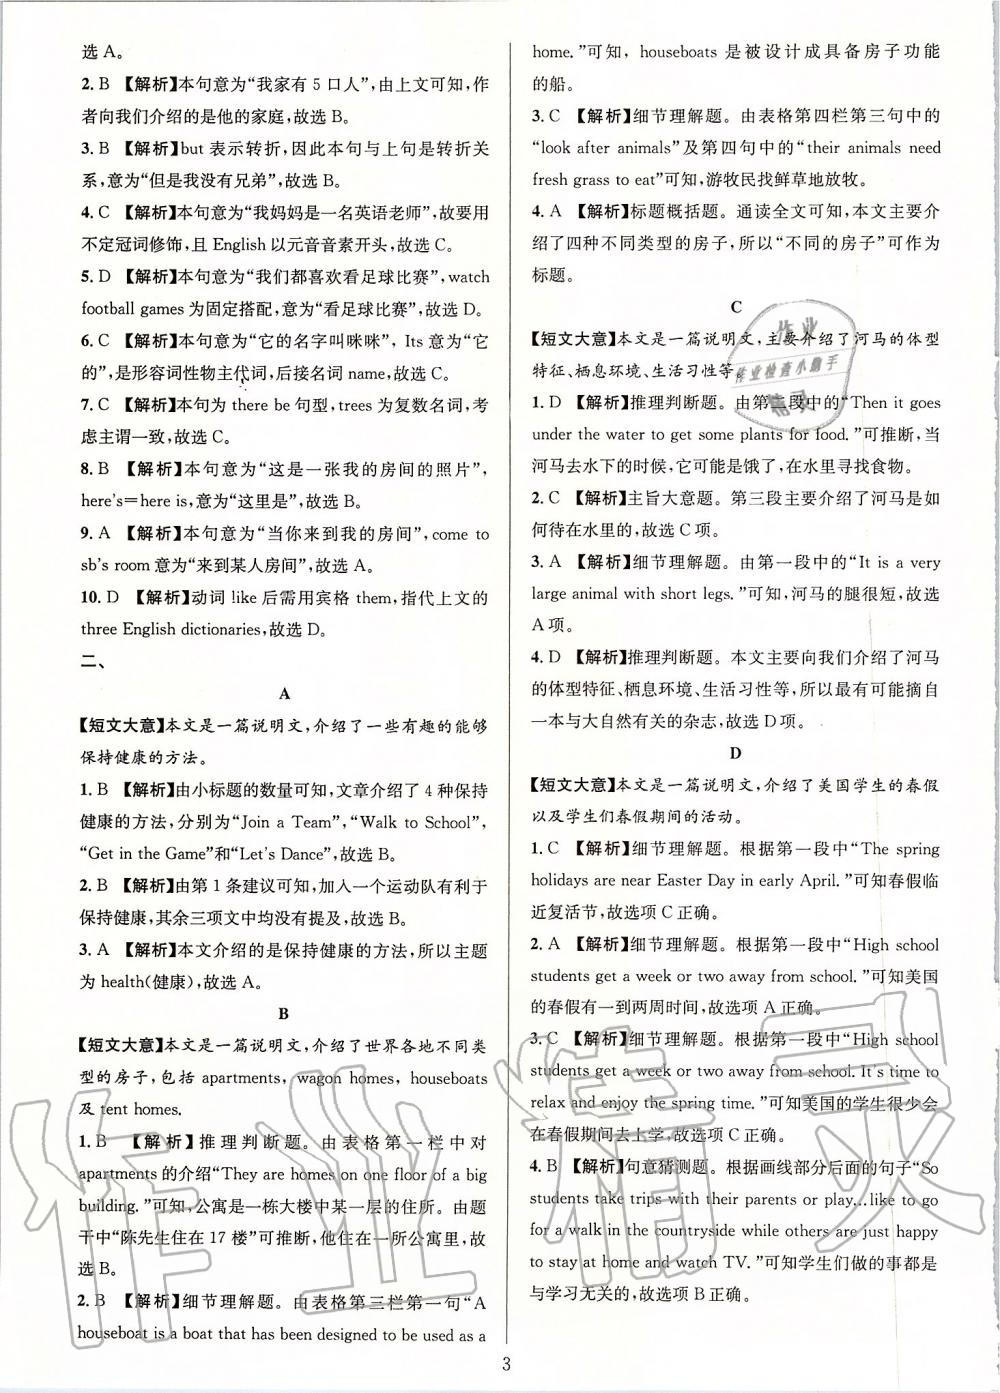 选 A。
2. B 【解析】本句意为“我家有 5 口人”,由上文可知,作
者向我们介绍的是他的家庭,故选 B。
3. B 【解析】but 表示转折,因此本句与上句是转折关
系,意为“但是我没有兄弟”,故选 B。
4. C 【解析】本句意为“我妈妈是一名英语老师”,故要用
不定冠词修饰,且 English 以元音音素开头,故选 C。
5. D 【解析】本句意为“我们都喜欢看足球比赛”,watch
football games 为固定搭配,意为“看足球比赛”,故选 D。
6. C 【解析】本句意为“它的名字叫咪咪”, Its 意为“它
的”,是形容词性物主代词,后接名词 name,故选 C。
7. C 【解析】本句为 there be 句型,trees 为复数名词,考
虑主谓一致,故选 C。
8. B 【解析】本句意为“这是一张我的房间的照片”,
here's=here is,意为“这里是”,故选 B。
9. A 【解析】本句意为“当你来到我的房间”,come to
sb's room 意为“来到某人房间”,故选 A。
10. D 【解析】动词 like 后需用宾格 them,指代上文的
three English dictionaries,故选 D。
二、
A
【短文大意】本文是一篇说明文,介绍了一些有趣的能够
保持健康的方法。
1. B 【解析】由小标题的数量可知,文章介绍了 4 种保持
健康的方法,分别为“Join a Team”,“Walk to School”,
“Get in the Game”和“Let's Dance”,故选 B。
2. B 【解析】由第 1 条建议可知,加入一个运动队有利于
保持健康,其余三项文中均没有提及,故选 B。
3. A 【解析】本文介绍的是保持健康的方法,所以主题
为 health(健康),故选 A。
B
【短文大意】本文是一篇说明文,介绍了世界各地不同类
型的房子,包括 apartments, wagon homes, houseboats
及 tent homes.
1. B 【解析】推理判断题。由表格第一栏中对
apartments 的介绍“They are homes on one floor of a big
building. ”可知,公寓是一栋大楼中某一层的住所。由题
干中“陈先生住在 17 楼”可推断,他住在一所公寓里,故
选 B。
2. B 【解析】细节理解题。由表格第三栏第一句“A
houseboat is a boat that has been designed to be used as a
home. ”可知, houseboats 是被设计成具备房子功能
的船。
3. C 【解析】细节理解题。由表格第四栏第三句中的
“look after animals”及第四句中的“their animals need
fresh grass to eat”可知,游牧民找鲜草地放牧。
4. A 【解析】标题概括题。通读全文可知,本文主要介
绍了四种不同类型的房子,所以“不同的房子”可作为
标题。
C
【短文大意】本文是一篇说明文,主要介绍了河马的体型
特征、栖息环境、生活习性等。
1. D 【解析】推理判断题。由第二段中的“Then it goes
under the water to get some plants for food. ”可推断,当
河马去水下的时候,它可能是饿了,在水里寻找食物。
2. C 【解析】主旨大意题。第三段主要介绍了河马是如
何待在水里的,故选 C 项。
3. A 【解析】细节理解题。由第一段中的“It is a very
large animal with short legs. ”可知,河马的腿很短,故选
A 项。
4. D 【解析】推理判断题。本文主要向我们介绍了河马
的体型特征、栖息环境、生活习性等,所以最有可能摘自
一本与大自然有关的杂志,故选 D 项。
D
【短文大意】本文是一篇说明文,介绍了美国学生的春假
以及学生们春假期间的活动。
1. C 【解析】细节理解题。根据第一段中“The spring
holidays are near Easter Day in early April. ”可知春假临
近复活节,故选项 C 正确。
2. A 【解析】细节理解题。根据第一段中“High school
students get a week or two away from school. ”可知美国
的春假有一到两周时间,故选项 A 正确。
3. C 【解析】细节理解题。根据第一段中“High school
students get a week or two away from school. It's time to
relax and enjoy the spring time. ”可知美国的学生很少会
在春假期间去上学,故选项 C 正确。
4. B 【解析】句意猜测题。根据画线部分后面的句子“So
students take trips with their parents or play...like to go
for a walk in the countryside while others are just happy
to stay at home and watch TV. ”可知学生们做的事都是
与学习无关的,故选项 B 正确。
3
作业
作业检查小助手
精灵
作业精灵